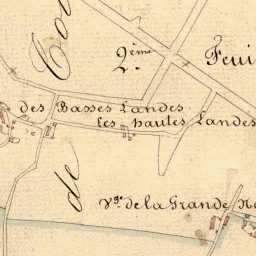 2.ème Feui
des Basses Landes
les hautes Landes
de
Vge de la Grande